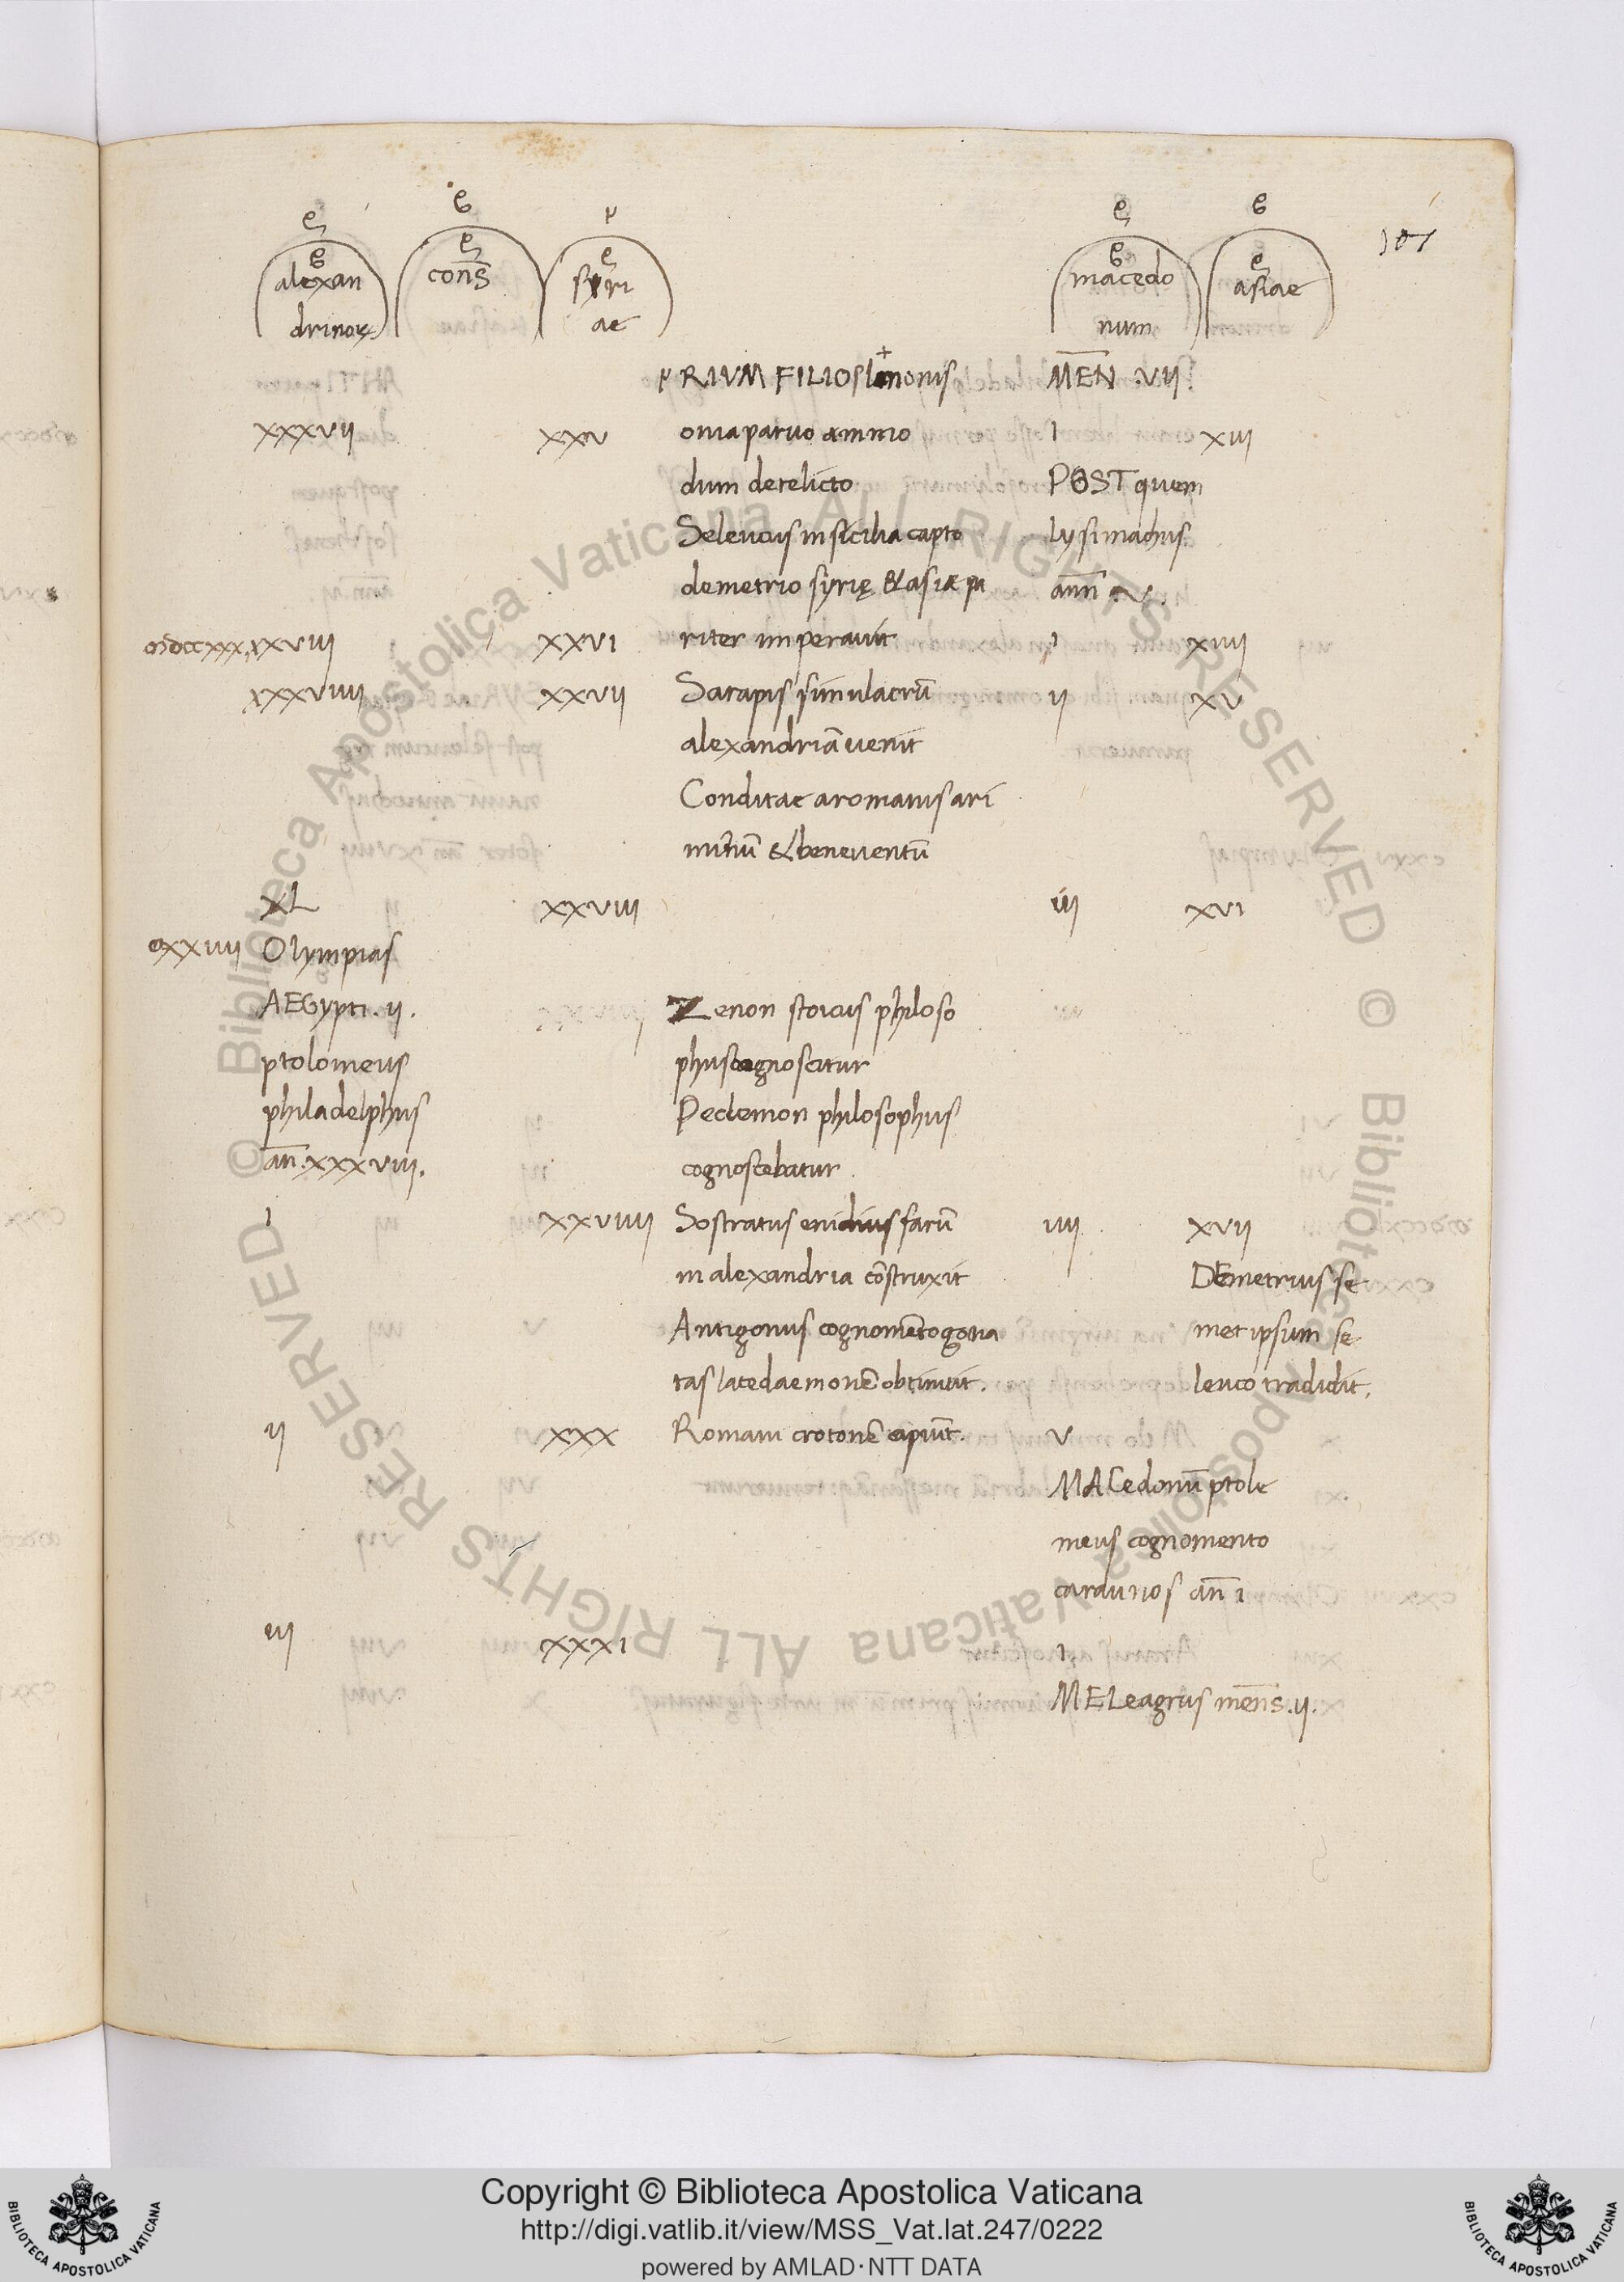 107
alexan conſ ſyri macedo aſiae
drinoꝝ ae num
RIVM FILIOſ ſimonis MEN . VII .
XXXVII XXV onia paruo ammo I XIII
dum derelicto POST quem
Seleucus in sicilia capto lysimachus
demetrio syrię & asiae pa ann̄ .V.
riter imperauit
XXXVIII XXVI I XIIII
XXXVIIII XXVII Sarapis simulacrū II XV
alexandriā uenit
Conditae a romanis ari
minū & beneuentū
XL XXVIII III XVI
CXXIIII Olympias
AEGypti . II . Zenon stoicus philoso
ptolomeus phus cognoscitur
philadelphus Peclemon philosophus
an̄ . XXXVIII . cognoscebatur .
I XXVIIII Sostratus enidius farū IIII XVII
in alexandria cōstruxit DEmetrius se
Antigonus cognomēto gona met ipsum se
tas lacedaemonē obtinuit . leuco tradidit .
II XXX Romani crotonē capiūt . V
MACedonū ptole
meus cognomento
caraunos an̄ I
III XXXI I
MELeagrus mēns . II .
Copyright © Biblioteca Apostolica Vaticana
http://digi.vatlib.it/view/MSS_Vat.lat.247/0222
powered by AMLAD·NTT DATA
BIBLIOTECA APOSTOLICA VATICANA
BIBLIOTECA APOSTOLICA VATICANA
© Biblioteca Apostolica Vaticana ALL RIGHTS RESERVED
© Biblioteca Apostolica Vaticana ALL RIGHTS RESERVED